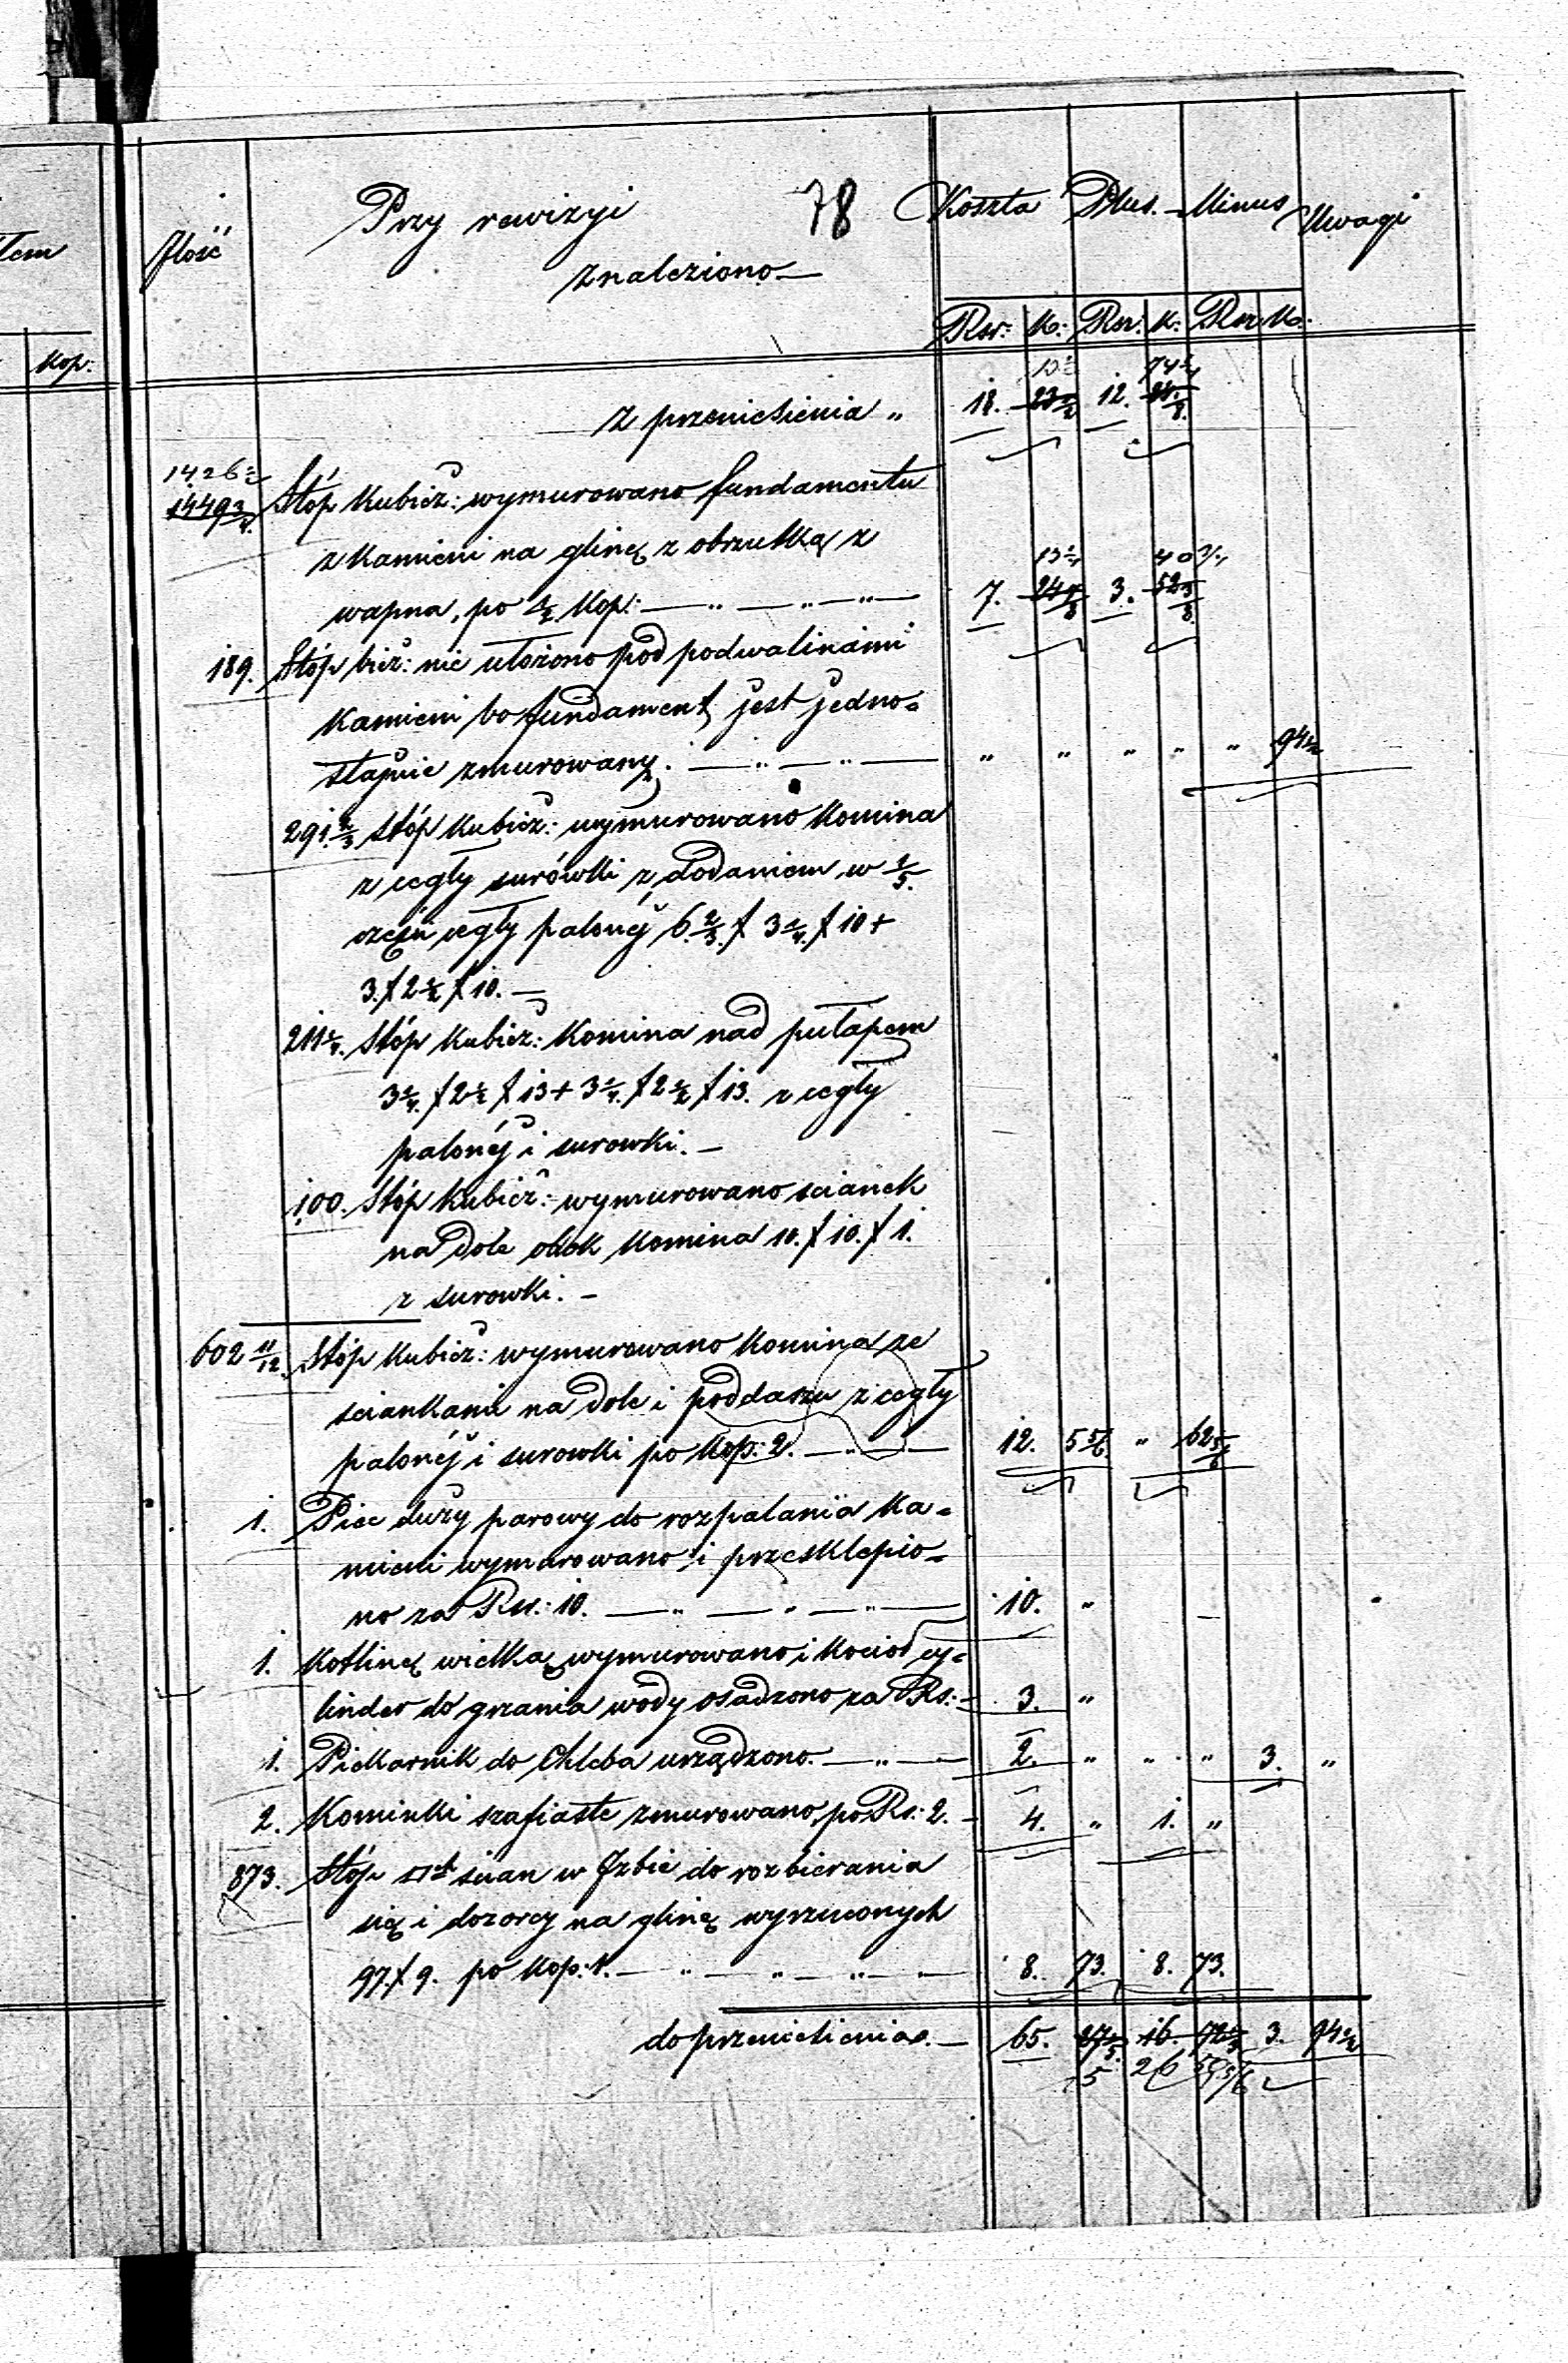 tem
Kop:
78
Ilość Przy rewizyi Koszta Plus. Minus Uwagi
znaleziono —
Rsr: K: Rsr: K: Rsr K:
74
z przeniesienia „ 18. 23 1/2 12.
1426
1449 3/4 Stóp Kubicz: wymurowano fundamentu
z kamieni na glinę z obrzutką z
13 40 3/4
wapna, po 1/2 Kop: — „ — „ — „ — 7. 24 3. 52
189. Stóp bież: nie ułożono pod podwalinami
Kamieni bo fundament jest jedno=
stajnie zmurowany. — „ — „ — „ „ „ „ „ 94 1/2
291 2/3 stóp Kubicz: wymurowano Komina
z cegły surówki z dodaniem w 1/5
części cegły palonéj 6 2/3 f 3 1/4 f 10 +
3. f 2 1/2 f 10. —
211 1/4. Stóp Kubicz: Komina nad pułapem
3 1/4. f 2 1/2 f 13 + 3 1/4. f 2 1/2 f 13. z cegły
palonéj i surowki. —
100. Stóp Kubicz: wymurowano scianek
na dole obok Komina 10. f 10. f 1.
z surowki. —
602 11/12. Stóp Kubicz: wymurowano Komina ze
sciankami na dole i poddaszu z cegły
palonéj i surowki po Kop: 2. — „ — 12. 5 5/6. „ 62 5/6
1. Piec duży parowy do rozpalania Ka=
mieni wymurowano i przesklepio=
no za Rsr: 10. — „ — „ — „ — 10. „
1. Kotlinę wielką wymurowano i Kocioł cy=
linder do grzania wody osadzono za Rs: — 3. „
1. Piekarnik do Chleba urządzono. — „ — 2. „ „ „ 3. „
2. Kominki szafiaste zmurowano, po Rs: 2. — 4. „ 1. „
873. Stóp □ scian w Izbie do rozbierania
się i dozorcy na glinę wyrzuconych
97. f 9. po Kop: 1. — „ — „ — „ — 8. 73. 8. 73.
do przeniesienia. — 65. 16. 3. 94 1/2
5 26 5/6